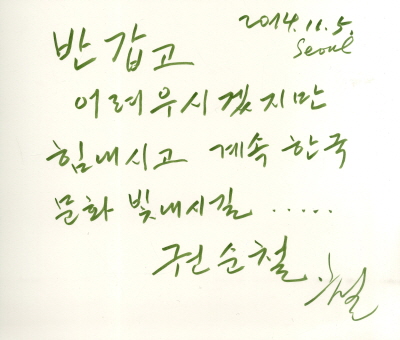 2014. 11. 5.
Seoul
반갑고
어려우시겠지만
힘내시고 계속 한국
문화 빛내시길 .....
권순철